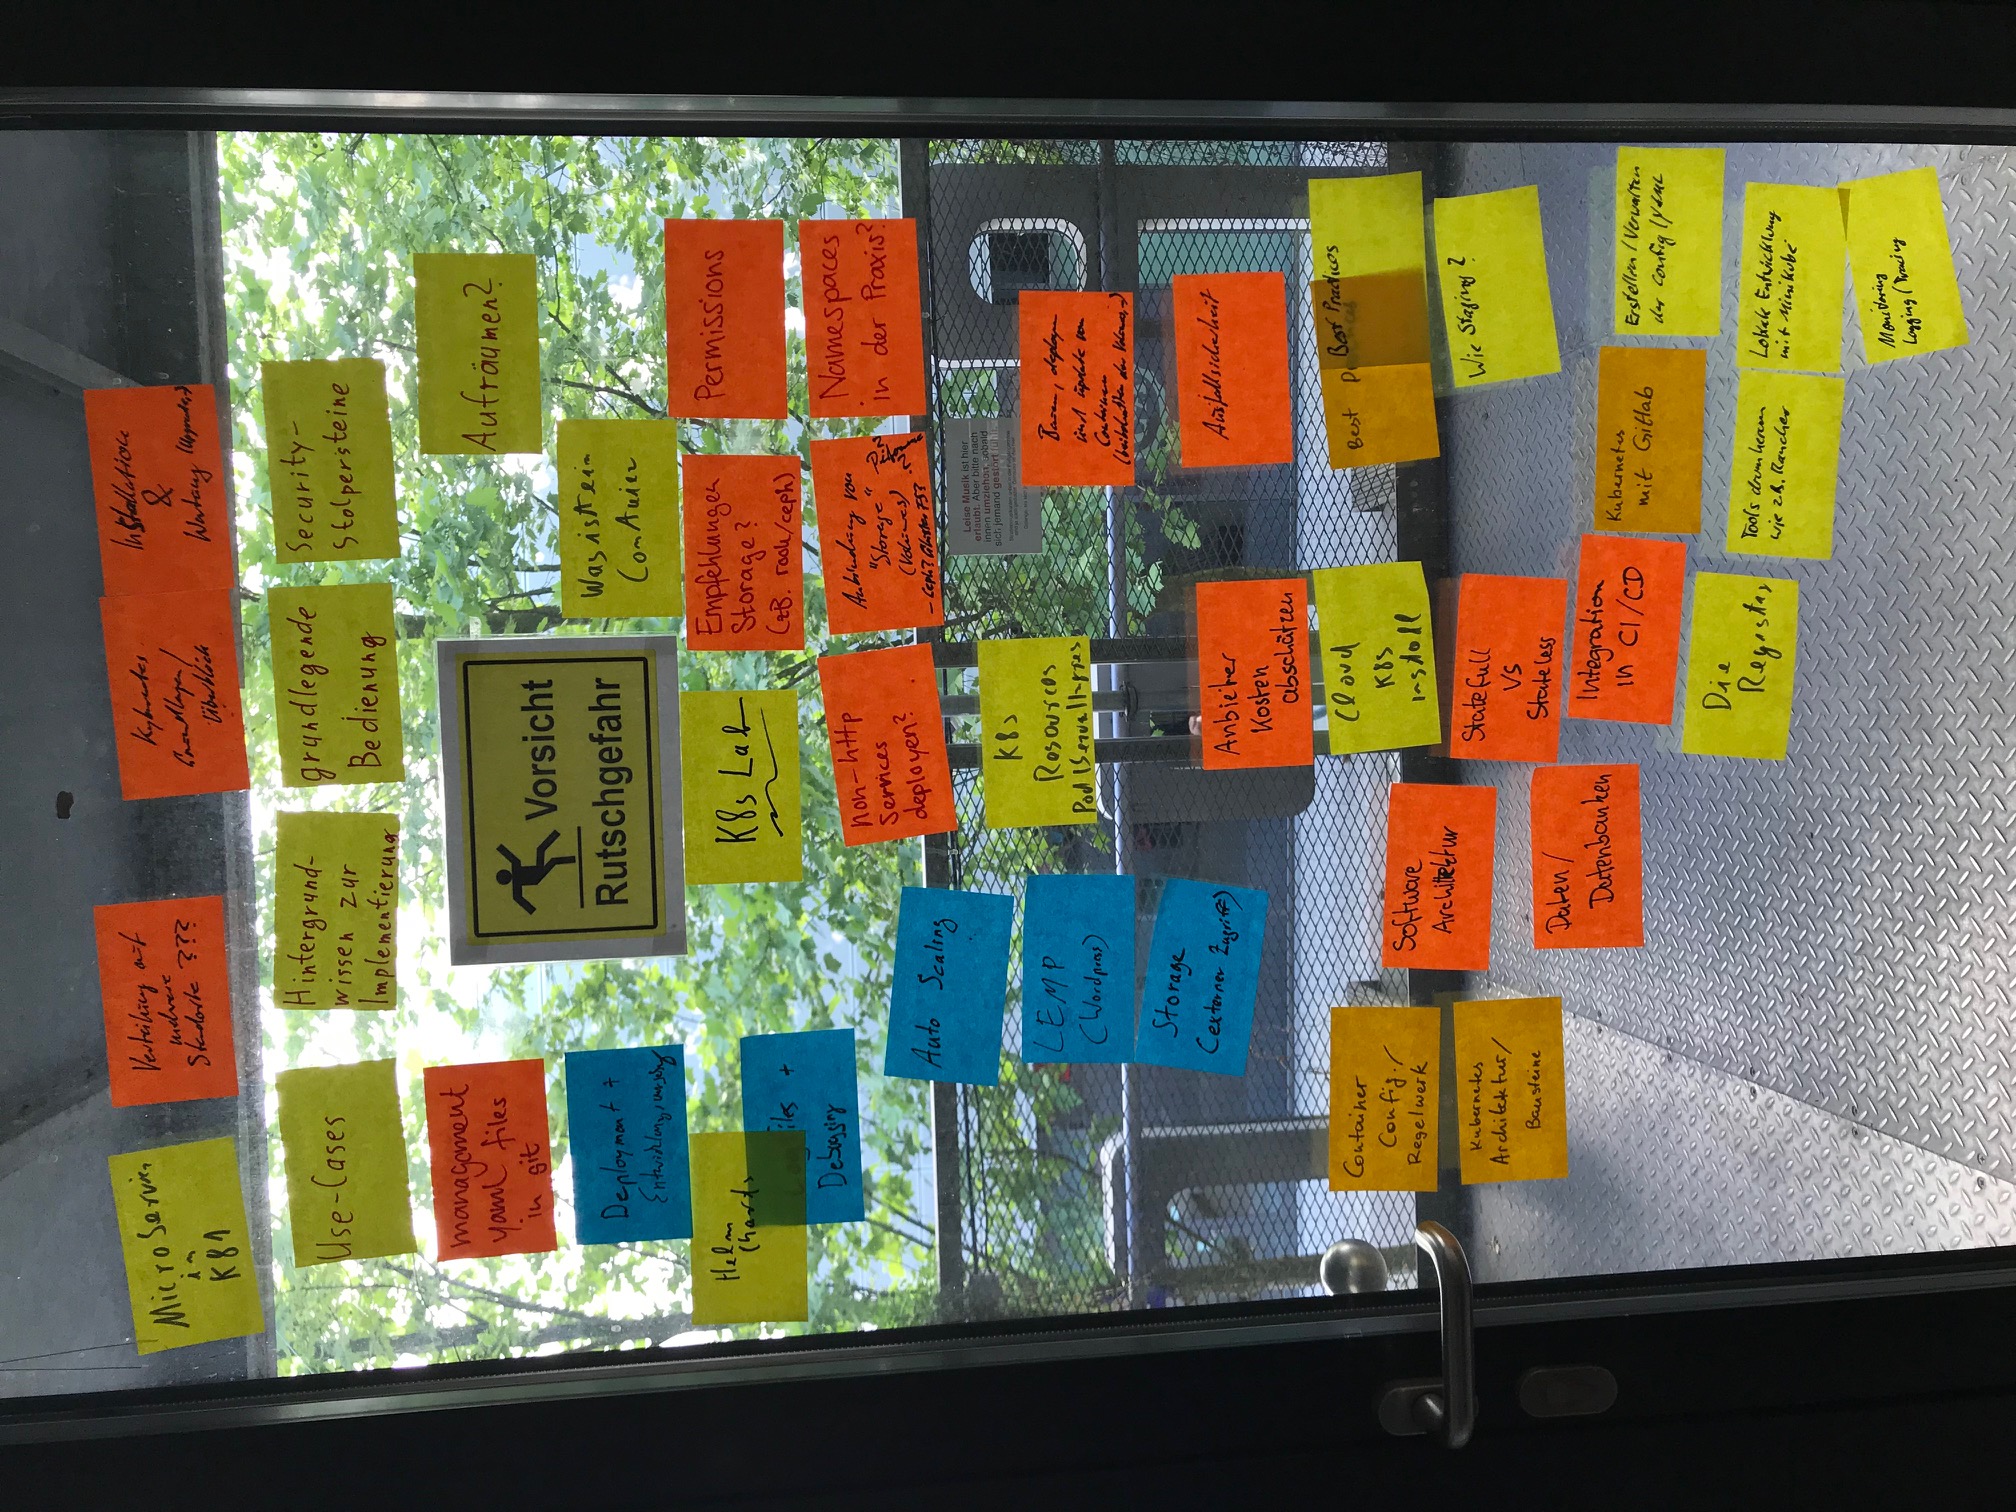 MicroServices
in
K8s
Verteilung auf
mehrere
Standorte ???
Kubernetes
Grundlagen/
Überblick
Installation
&
Wartung (Upgrades,
Use-Cases
Hintergrund-
wissen zur
Implementierung
grundlegende
Bedienung
Security-
Stolpersteine
management
yaml files
in git
Vorsicht
Rutschgefahr
Aufräumen?
Deployment +
Entwicklungs
Was ist ein
Container
Helm
Charts
Logfiles +
Debugging
K8s Lab
Empfehlungen
Storage?
(zB. rook/ceph)
Permissions
non-http
Services
deployen?
Anbindung von
"Storage"
(Volumes)
- Ceph? GlusterFS?
Namespaces
in der Praxis?
Auto Scaling
Leise Musik ist hier
erlaubt. Aber bitte nach
innen umziehen, sobald
sich jemand gestört fühlt.
K8s
Resources
Pod
LEMP
(Wordpress)
Bauen, deployen
und update von
Containern
(beibehalten der Volumes,
Storage
(externer Zugriff)
Anbieter
Kosten
abschätzen
Ausfallsicherheit
Container
Config./
Regelwerk
Cloud
K8s
install
Best Practices
Best Practices
Software
Architektur
Kubernetes
Architektur/
Bausteine
Statefull
VS
Stateless
Wie Staging?
Daten/
Datenbanken
Integration
in CI/CD
Kubernetes
mit Gitlab
Erstellen/Verwalten
der config/YAML
Die
Registry
Tools drumherum
wie z.B. Rancher
Lokale Entwicklung
mit Minikube
Monitoring
Logging/Tracing